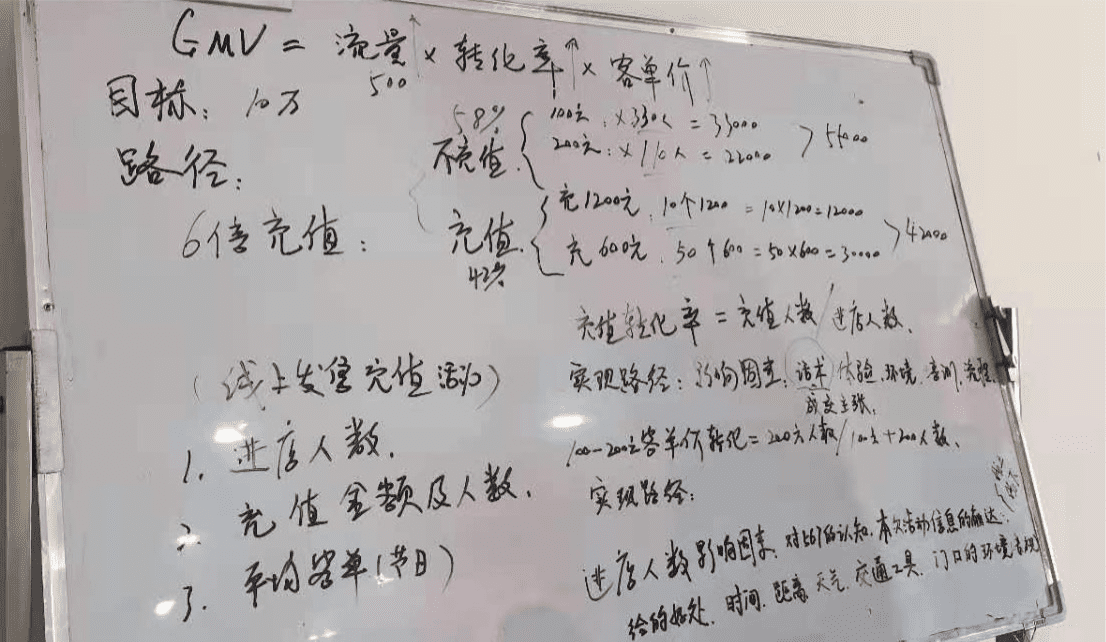 GMV = 流量↑ × 转化率↑ × 客单价↑
500
目标: 10万
58%
不充值 { 100元: ×330人 = 33000
200元: ×110人 = 22000 > 55000
路径:
6倍充值: 充值 { 充1200元. 10个1200 = 10×1200=12000
42% 充600元. 50个600 = 50×600=30000 > 42000
充值转化率 = 充值人数/进店人数.
(线上发售充值活动)
实现路径: 影响因素: 话术 体验 环境 培训 流程
成交主张.
1. 进店人数.
100-200元客单价转化=200元人数/100元+200人数.
2. 充值金额及人数.
实现路径:
3. 平均客单(节日)
进店人数影响因素 对567的认知. 本次活动信息的触达:
给的好处. 时间. 距离 天气. 交通工具. 门口的环境